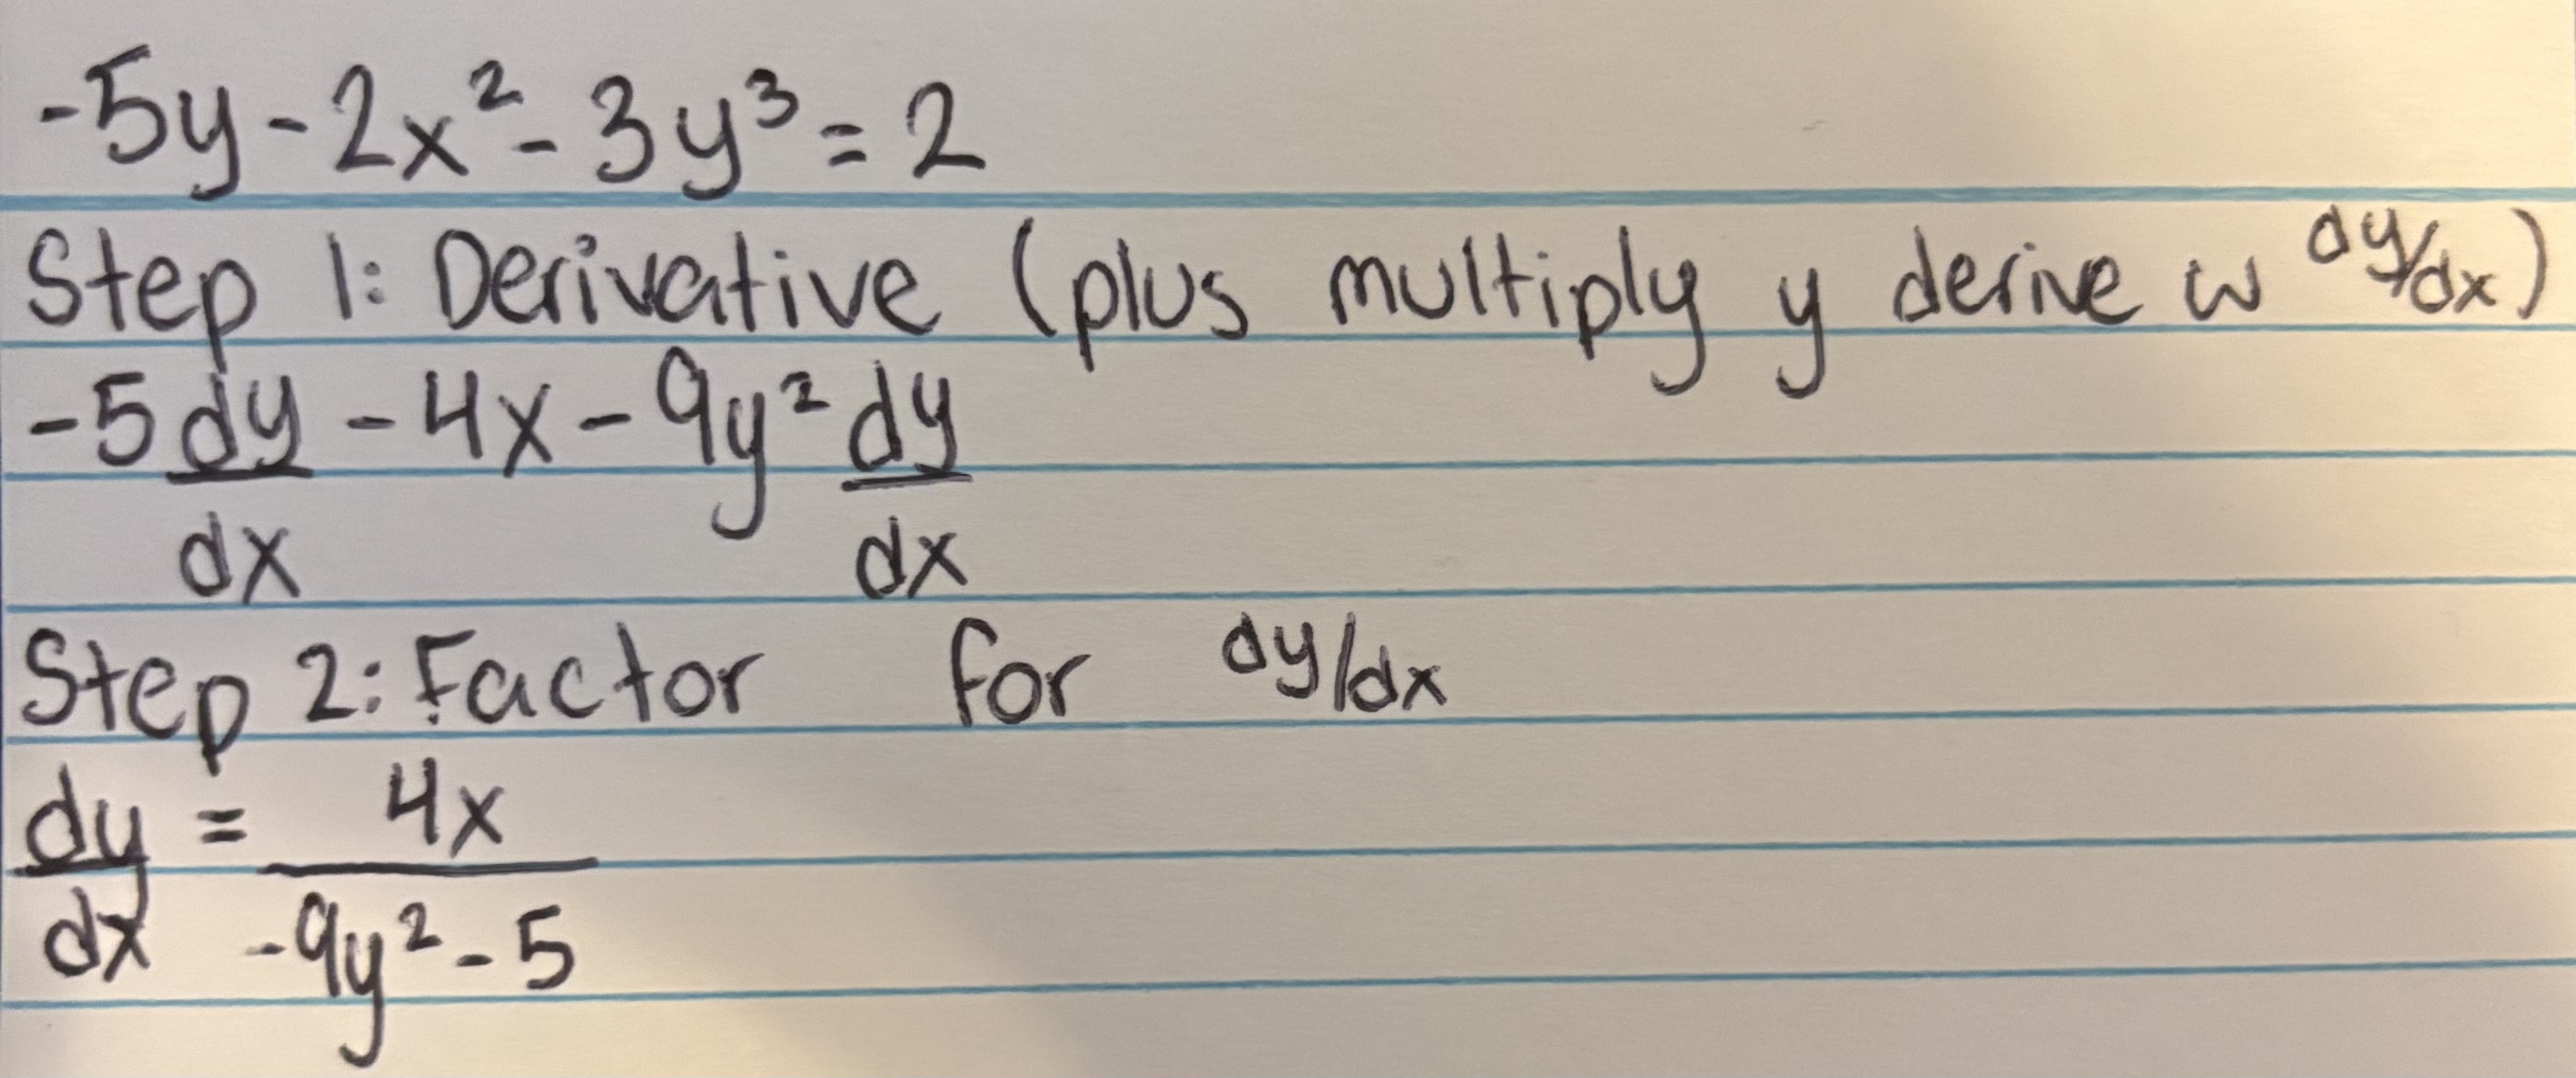 -5y - 2x² - 3y³ = 2
Step 1: Derivative (plus multiply y derive w dy/dx)
-5 dy/dx - 4x - 9y² dy/dx
Step 2: Factor for dy/dx
dy/dx = 4x/(-9y² - 5)